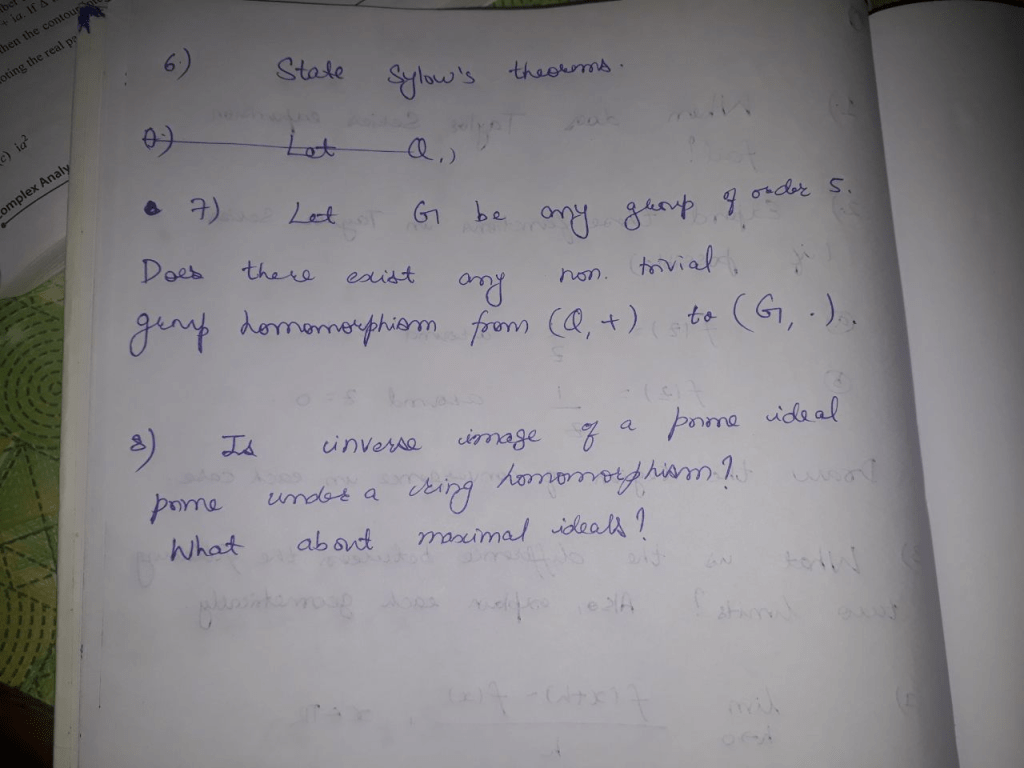 ber
+ ia. If
hen the contour
oting the real p
c) ia²
omplex Analy
6.) State Sylow's theorems.
7) Let Q,,
7) Let G be any group of order 5.
Does there exist any non. trivial
group homomorphism from (Q, +) to (G, ·).
8) Is inverse image of a prime ideal
prime under a ring homomorphism?
What about maximal ideals?